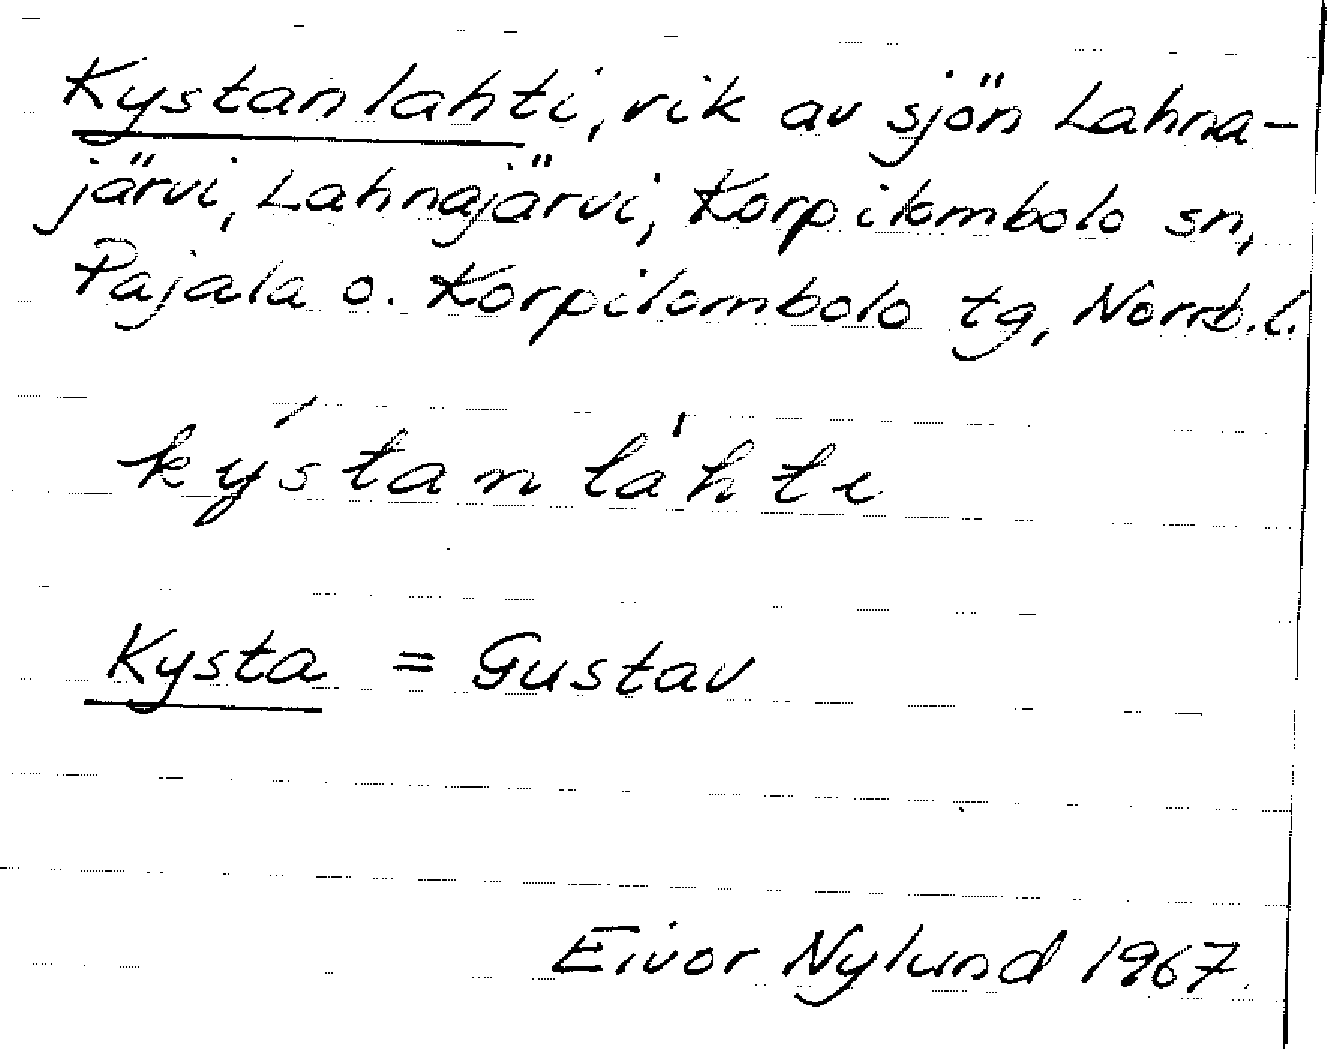 Kystanlahti, vik av sjön Lahna-
järvi, Lahnajärvi, Korpilombolo sn,
Pajala o. Korpilombolo tg, Norrb.l.
kýstan láhti
Kysta = Gustav
Eivor Nylund 1967.